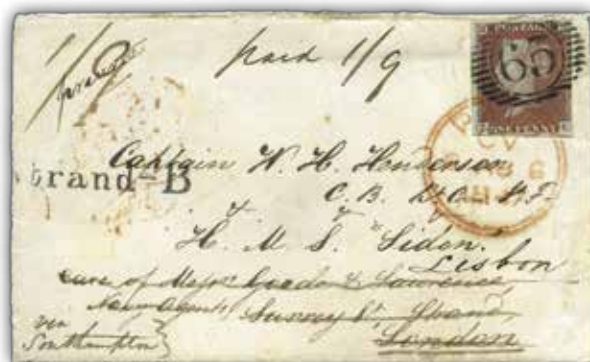 1/9 paid 1/9
POSTAGE
65
ONE PENNY
Captain W. H. Henderson
trand-B
C.B. &c. &c. &c.
H. M. S. "Sidon."
Lisbon
care of Messrs Goode & Lawrence,
Navy Agents Surrey St, Strand
London
via
Southampton